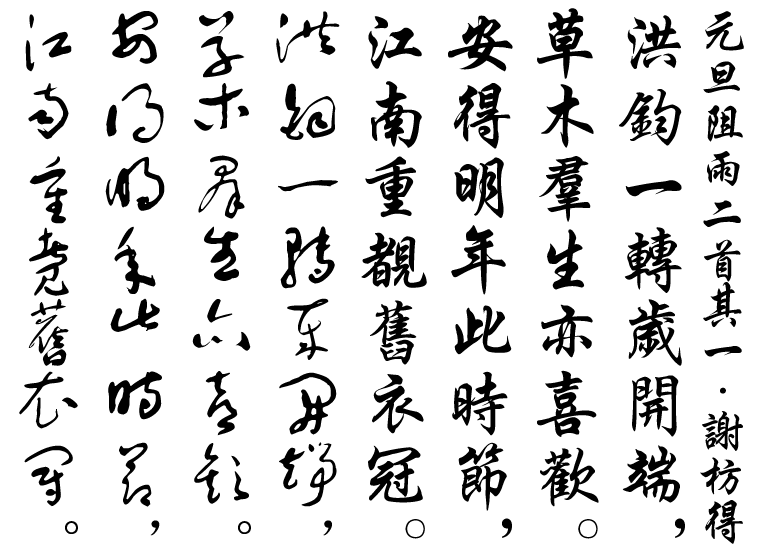 元旦阻雨二首其一·謝枋得
洪鈞一轉歲開端，
草木羣生亦喜歡。
安得明年此時節，
江南重覩舊衣冠。
洪鈞一轉歲開端，
草木羣生亦喜歡。
安得明年此時節，
江南重覩舊衣冠。